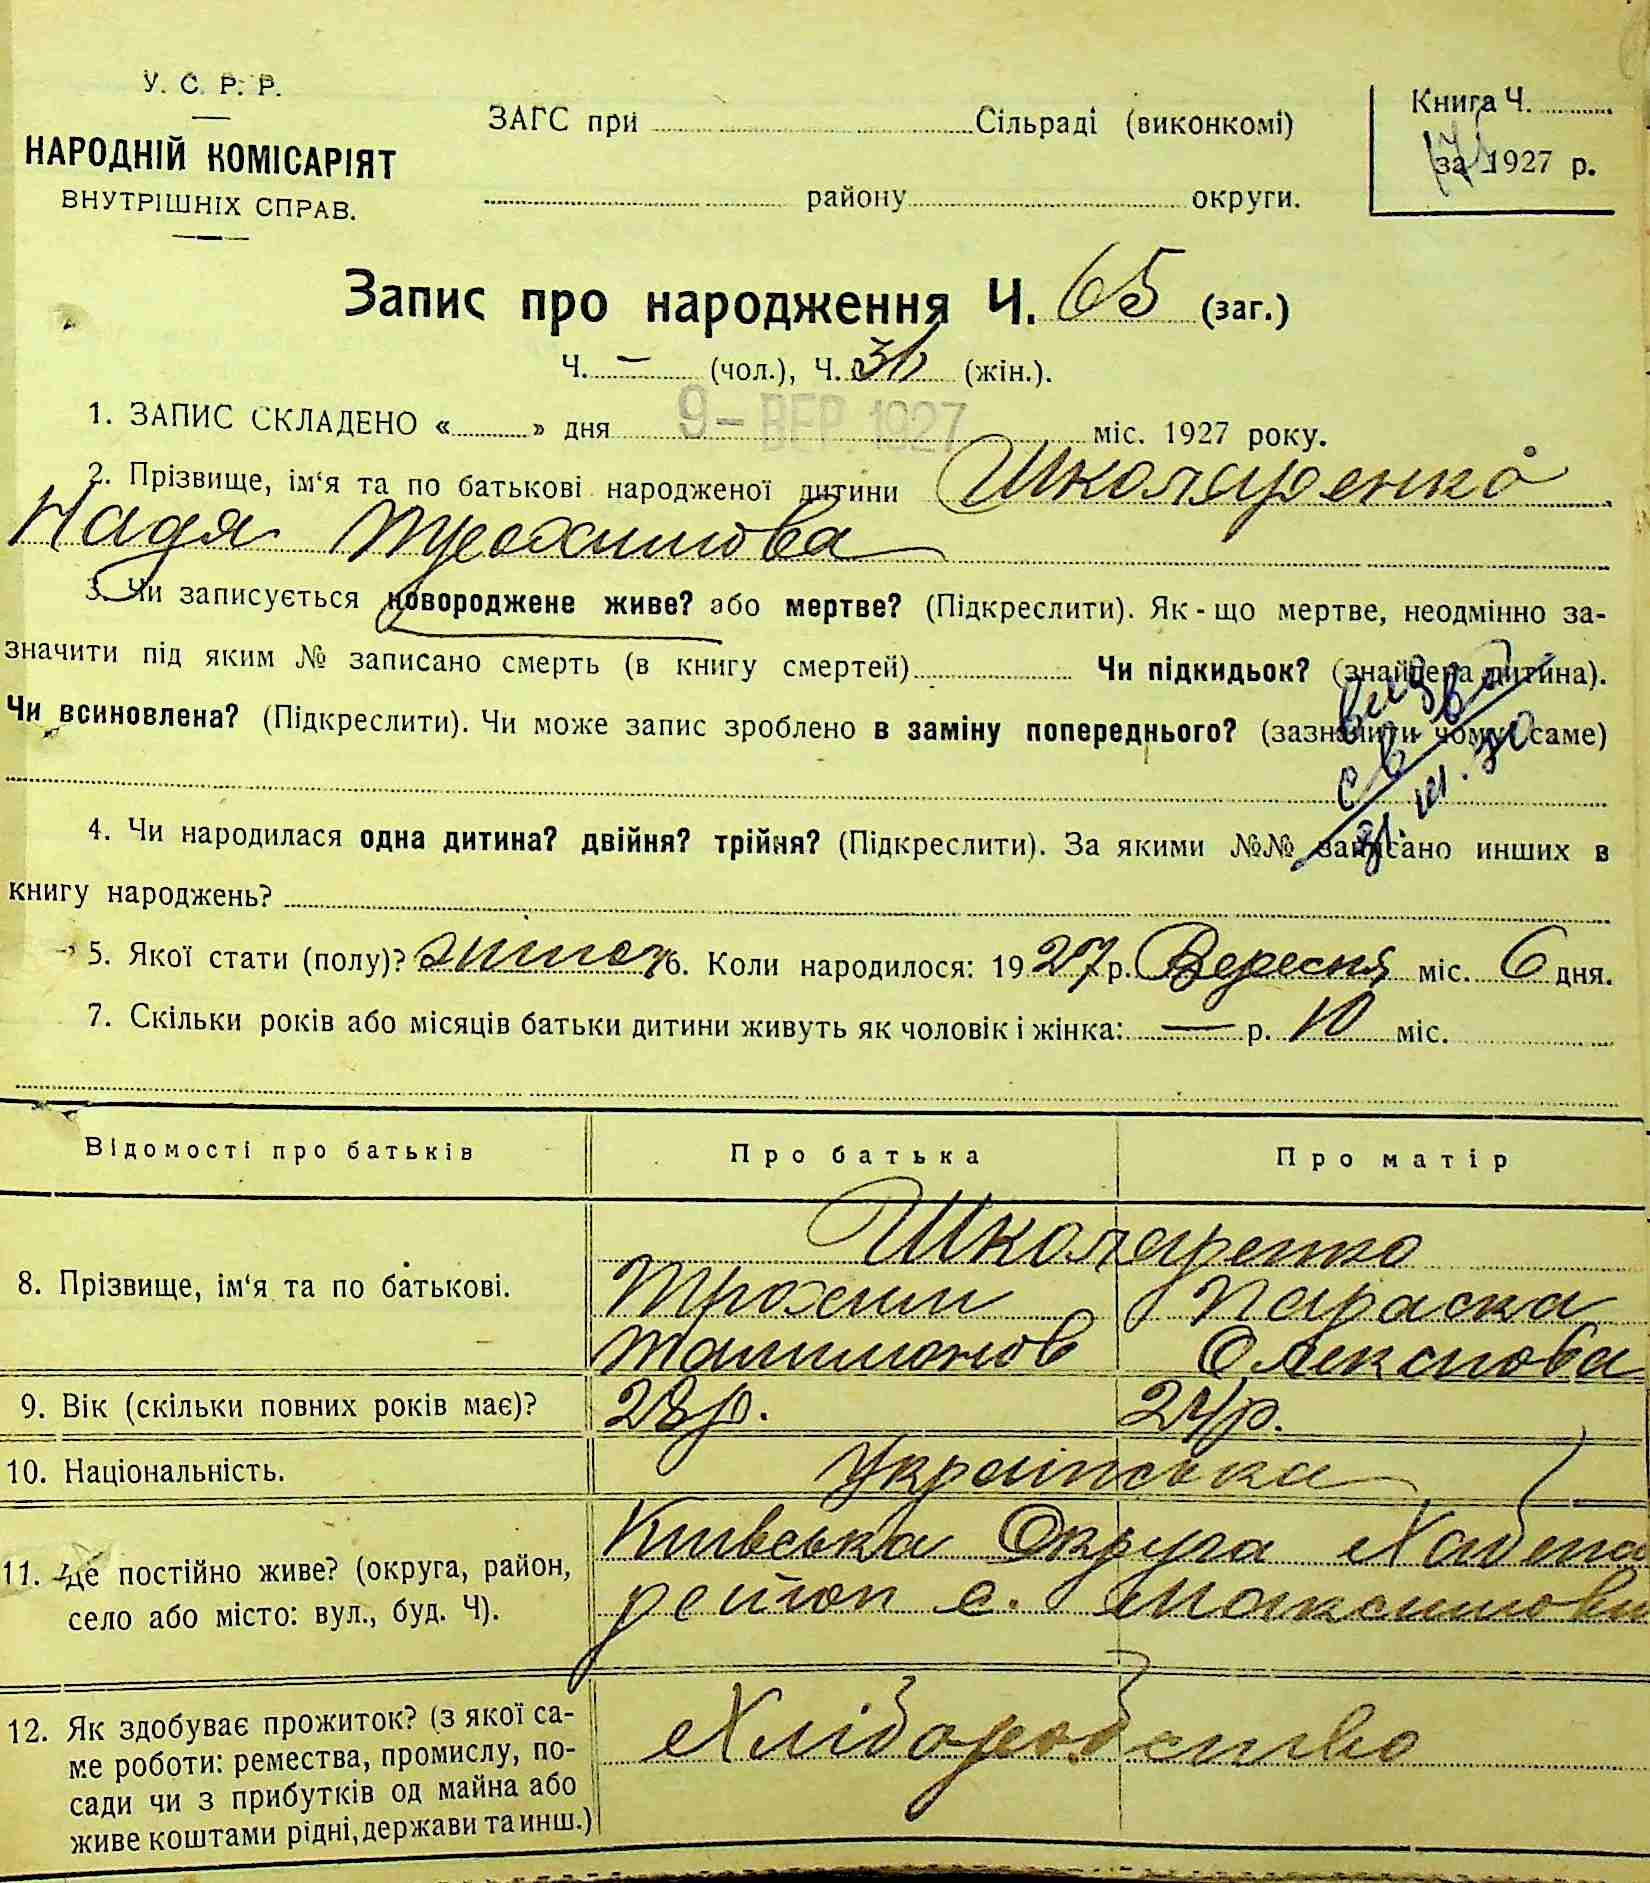 У. С. Р. Р.
НАРОДНІЙ КОМІСАРІЯТ
ВНУТРІШНІХ СПРАВ.
ЗАГС при Сільраді (виконкомі)
району округи.
Книга Ч.
за 1927 р.
Запис про народження Ч. 65 (заг.)
Ч. — (чол.), Ч. (жін.).
1. ЗАПИС СКЛАДЕНО « » дня 9 - ВЕР. 1927 міс. 1927 року.
2. Прізвище, ім‘я та по батькові народженої дитини Школяренко
Надя Трохимова
3. Чи записується новороджене живе? або мертве? (Підкреслити). Як - що мертве, неодмінно за-
значити під яким № записано смерть (в книгу смертей) Чи підкидьок? (знайдена дитина).
Чи всиновлена? (Підкреслити). Чи може запис зроблено в заміну попереднього? (зазначити чому саме)
4. Чи народилася одна дитина? двійня? трійня? (Підкреслити). За якими №№ записано инших в
книгу народжень?
5. Якої стати (полу)? 6. Коли народилося: 1927 р. Вересня міс. 6 дня.
7. Скільки років або місяців батьки дитини живуть як чоловік і жінка: — р. 10 міс.
Відомості про батьків Про батька Про матір
8. Прізвище, ім‘я та по батькові.
Школяренко
Трохим Параска
Олексиова
9. Вік (скільки повних років має)? 28 р. 24 р.
10. Національність. Українська
11. Де постійно живе? (округа, район,
село або місто: вул., буд. Ч).
Київська Округа Хабена
район с. Максимови
12. Як здобуває прожиток? (з якої са-
ме роботи: ремества, промислу, по-
сади чи з прибутків од майна або
живе коштами рідні, держави та инш.)
Хліборобство